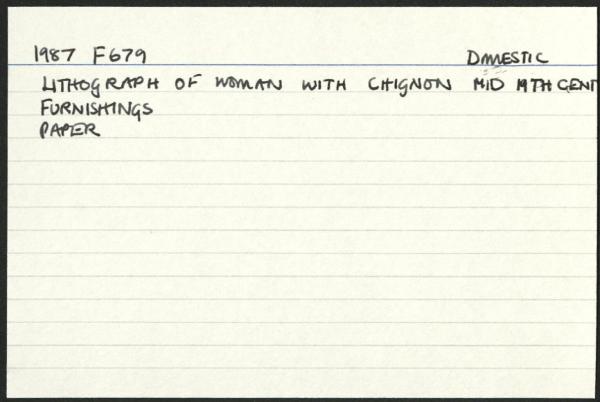 1987 F679 DOMESTIC
LITHOGRAPH OF WOMAN WITH CHIGNON MID 19TH CENT
FURNISHINGS
PAPER